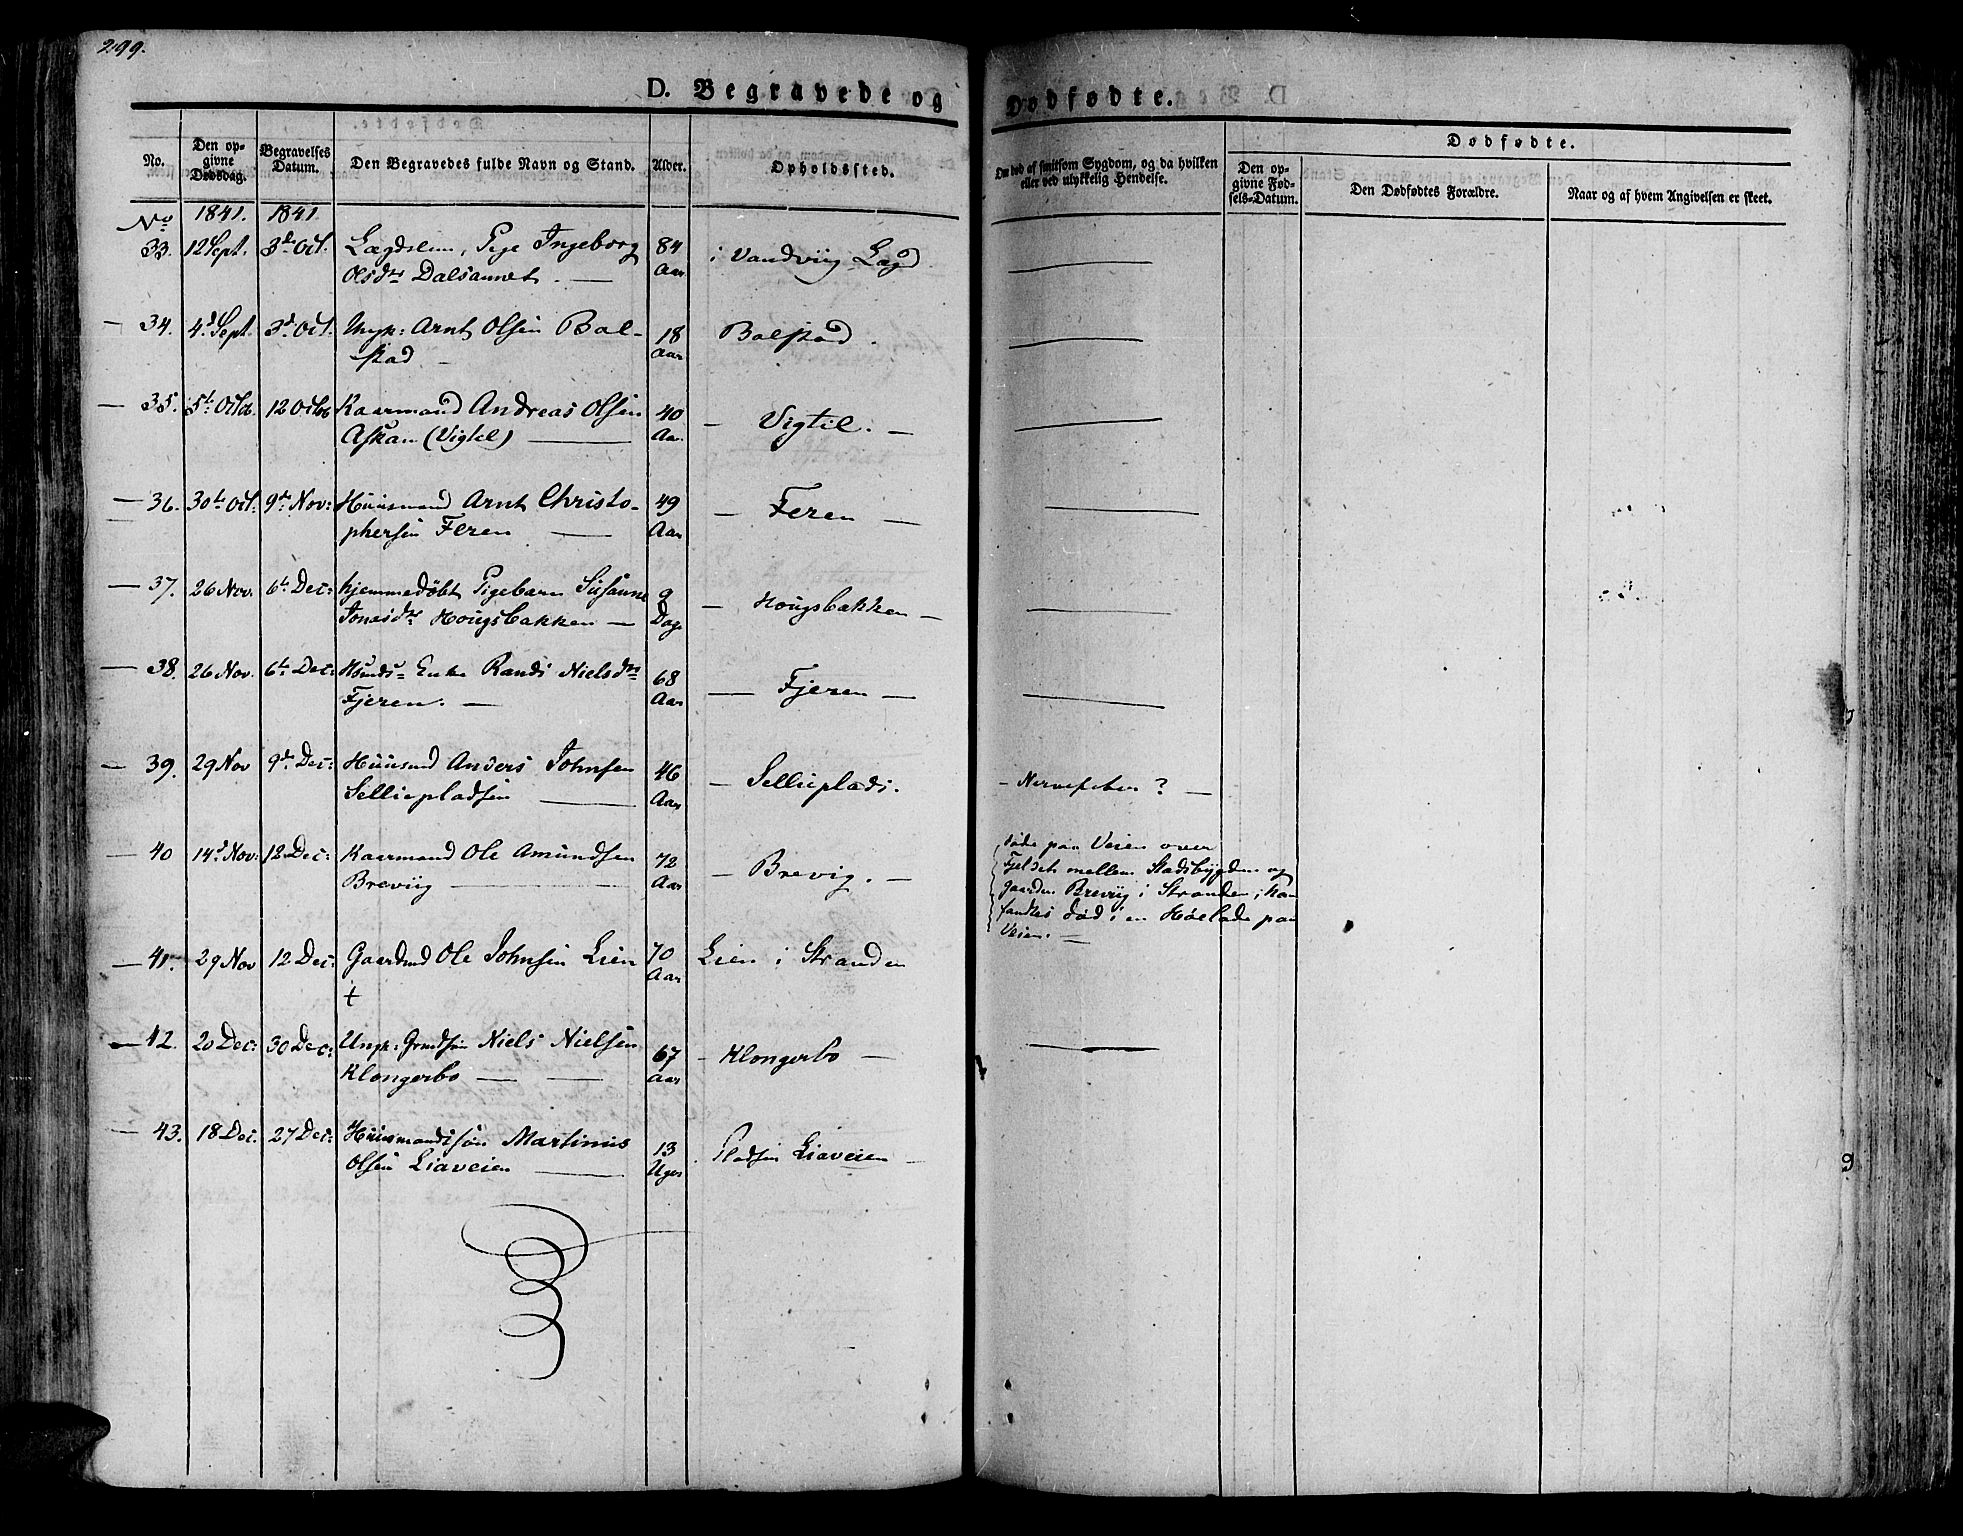 299.
D. Begravede og Dødfødte.
No.
Den opgivne Dødsdag.
Begravelses Datum.
Den Begravedes fulde Navn og Stand.
Alder.
Opholdssted.
Om død af smitsom Sygdom, og da hvilken eller ved ulykkelig Hendelse.
Dødfødte.
Den opgivne Fødsels-Datum.
Den Dødfødtes Forældre.
Naar og af hvem Angivelsen er skeet.
No 1841. 1841.
33. 12 Sept. 3d Oct. Lægdslem, Pige Ingeborg 84 i Vandviig Lægd
Olsdr Dalsaunet. — Aar
34. 4d Sept. 3d Oct. Ungk: Arnt Olsen Bal- 18 Balstad.
stad — Aar
35. 5t Octb. 12 Octb Kaarmand Andreas Olsen 40 — Vigtil. —
Askan (Vigtel) — Aar
36. 30t Oct. 9de Nov: Huusmand Arnt Christo- 49 — Feren —
phersen Feren — Aar
37. 26 Nov. 6te Dec: hjemmedøbt Pigebarn Susanne 9 — Hougsbakken —
Jonesdr Hougsbakken — Dage
38. 26 Nov. 6te Dec: Huusmds= Enke Randi Nielsdr 68 — Fjeren —
Fjeren. — Aar
39. 29 Nov 9de Dec: Huusmd Anders Johnsen 46 — Sellieplads. — Nervefeber? —
Selliepladsen — Aar
40 14d Nov: 12 Dec: Kaarmand Ole Amundsen 72 — Brevig. —
Breviig — Aar
døde paa Veien over
Fjeldet mellem Stadsbygden og
gaarden Breviig i Stranden; han
fandtes død i en Høelade paa
Veien. —
41. 29 Nov 12 Dec: Gaardmd Ole Johnsen Lien 70 Lien i Stranden
† Aar
42. 20 Dec: 30 Dec: Ungk: Grmdsøn Niels Nielsen 67 — Klongerbo —
Klongerbo — — Aar
43. 18 Dec. 27 Dec: Huusmandssøn Martinus 13 Pladsen Liaveien —
Olsen Liaveien — Uger